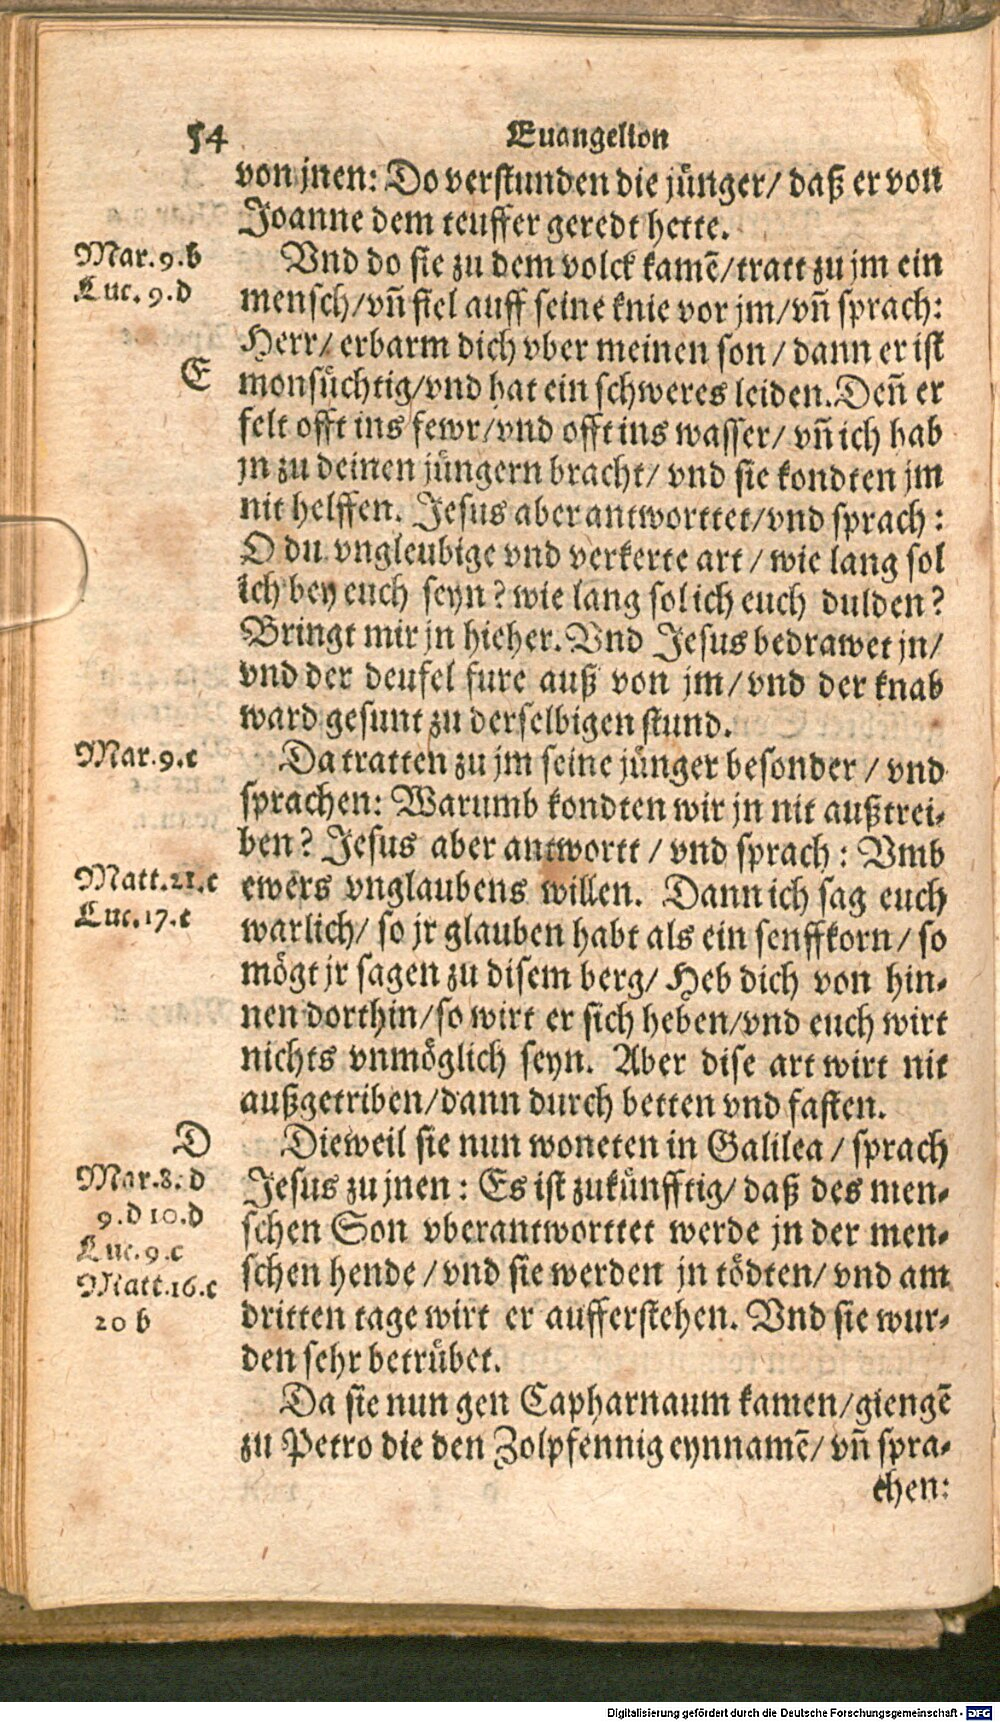 54 Euangelion
von jnen: Do verstunden die jünger/ daß er von
Joanne dem teuffer geredt hette.
Mar. 9. b
Luc. 9. d
Vnd do sie zu dem volck kamē/tratt zu jm ein
mensch/vñ fiel auff seine knie vor jm/vñ sprach:
Herr/ erbarm dich vber meinen son/ dann er ist
E
monsüchtig/vnd hat ein schweres leiden. Deñ er
felt offt ins fewr/vnd offt ins wasser/ vñ ich hab
jn zu deinen jüngern bracht/ vnd sie kondten jm
nit helffen. Jesus aber antworttet/vnd sprach:
O du vngleubige vnd verkerte art/ wie lang sol
ich bey euch seyn? wie lang sol ich euch dulden?
Bringt mir jn hieher. Vnd Jesus bedrawet jn/
vnd der deufel fure auß von jm/vnd der knab
ward gesunt zu derselbigen stund.
Mar. 9. c
Da tratten zu jm seine jünger besonder/ vnd
sprachen: Warumb kondten wir jn nit außtrei-
ben? Jesus aber antwortt/ vnd sprach: Vmb
Matt. 21. c
Luc. 17. c
ewers vnglaubens willen. Dann ich sag euch
warlich/ so jr glauben habt als ein senffkorn/ so
mögt jr sagen zu disem berg/ Heb dich von hin-
nen dorthin/so wirt er sich heben/vnd euch wirt
nichts vnmöglich seyn. Aber dise art wirt nit
außgetriben/dann durch betten vnd fasten.
D
Mar. 8. d
9. d 10. d
Luc. 9. c
Matt. 16. c
20 b
Dieweil sie nun woneten in Galilea/ sprach
Jesus zu jnen: Es ist zukünfftig/ daß des men-
schen Son vberantworttet werde jn der men-
schen hende/ vnd sie werden jn tödten/ vnd am
dritten tage wirt er aufferstehen. Vnd sie wur-
den sehr betrübet.
Da sie nun gen Capharnaum kamen/giengē
zu Petro die den Zolpfennig eynnamē/ vñ spra-
chen:
Digitalisierung gefördert durch die Deutsche Forschungsgemeinschaft - DFG